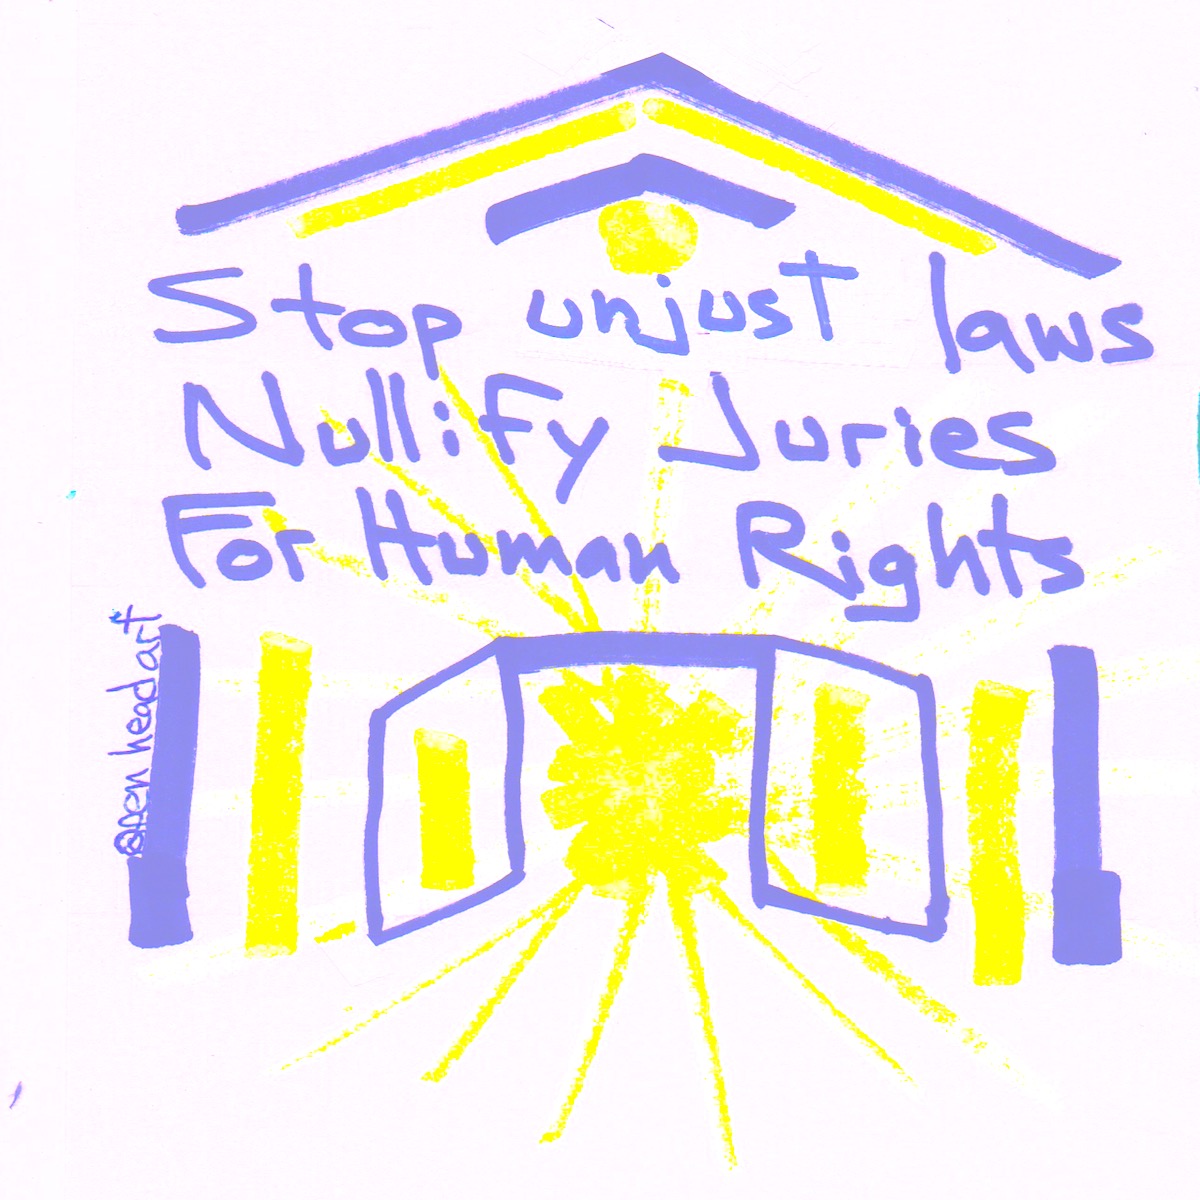 Stop unjust laws
Nullify Juries
For Human Rights
@pen head art